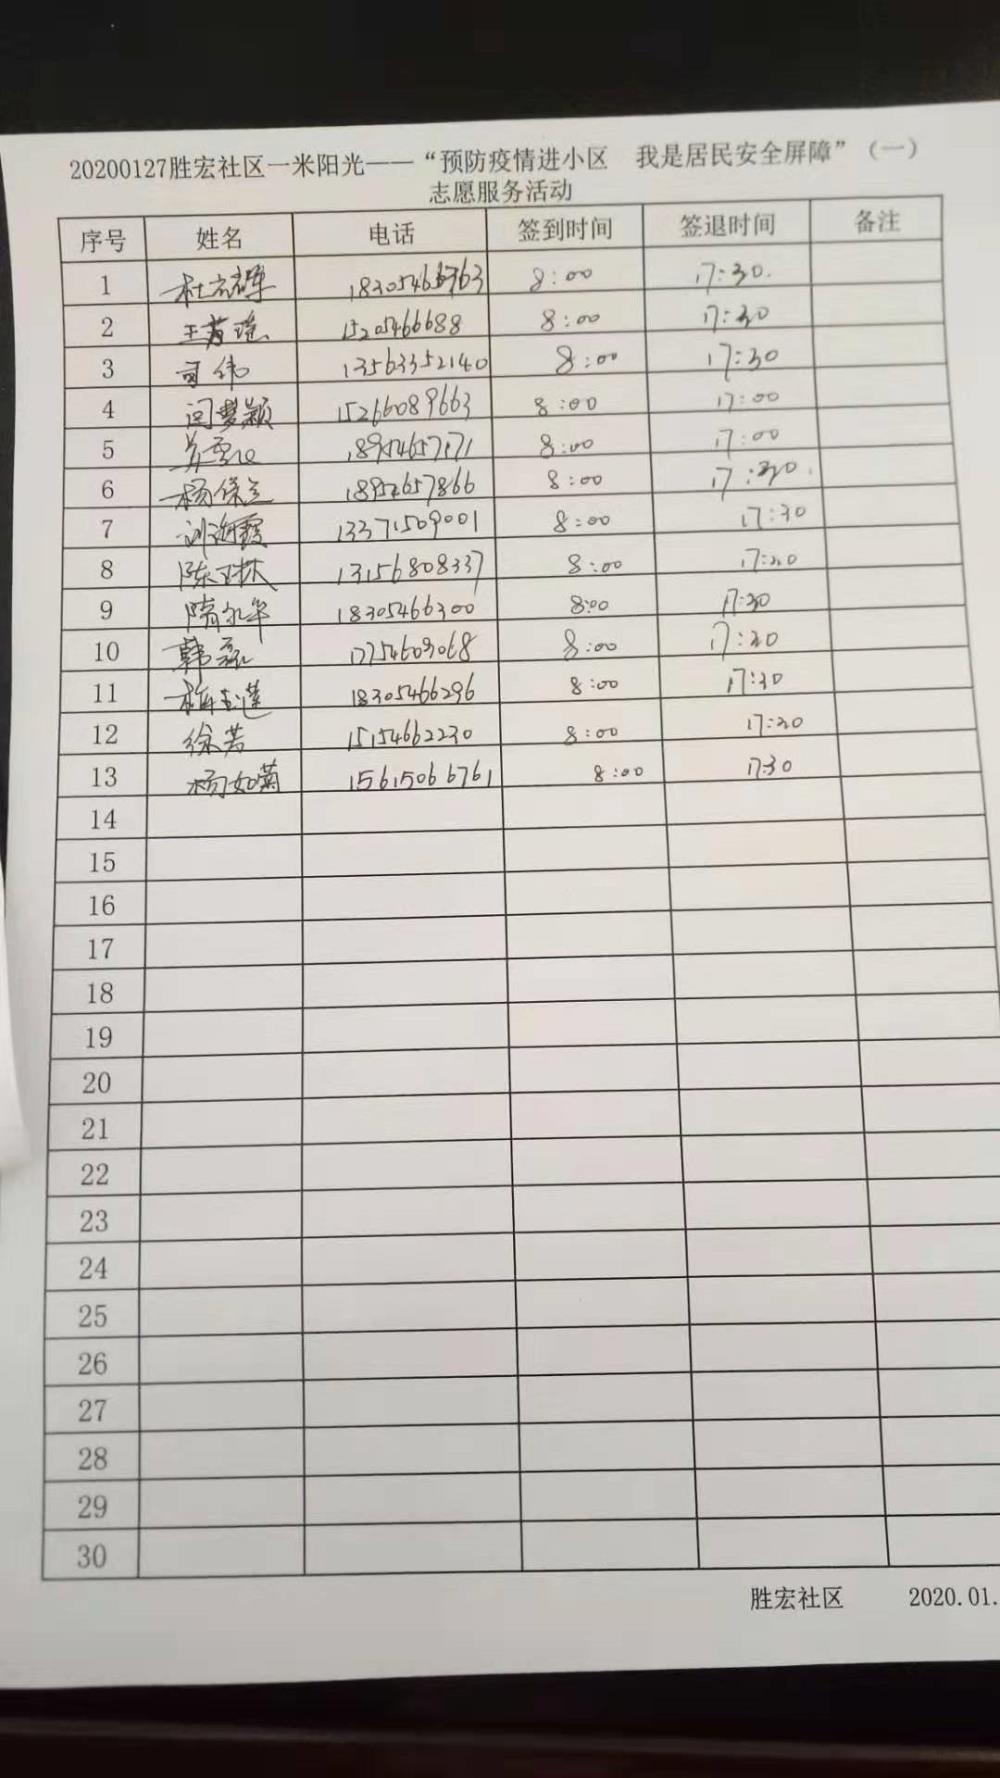 20200127胜宏社区一米阳光——“预防疫情进小区　我是居民安全屏障”（一）
志愿服务活动
序号 姓名 电话 签到时间 签退时间 备注
1 18305466763 8:00 17:30.
2 王 15205466688 8:00 17:30
3 司伟 13563352140 8:00 17:30
4 闫梦颖 15266089663 8:00 17:00
5 18954657171 8:00 17:00
6 杨保兰 18954657866 8:00 17:30.
7 刘海霞 13371509001 8:00 17:30
8 陈卫林 13156808337 8:00 17:30
9 隋永华 18305466300 8:00 17:30
10 韩磊 17754609068 8:00 17:30
11 18305466296 8:00 17:30
12 徐芳 15154662230 8:00 17:30
13 杨如菊 15615066761 8:00 17:30
14
15
16
17
18
19
20
21
22
23
24
25
26
27
28
29
30
胜宏社区 2020.01.